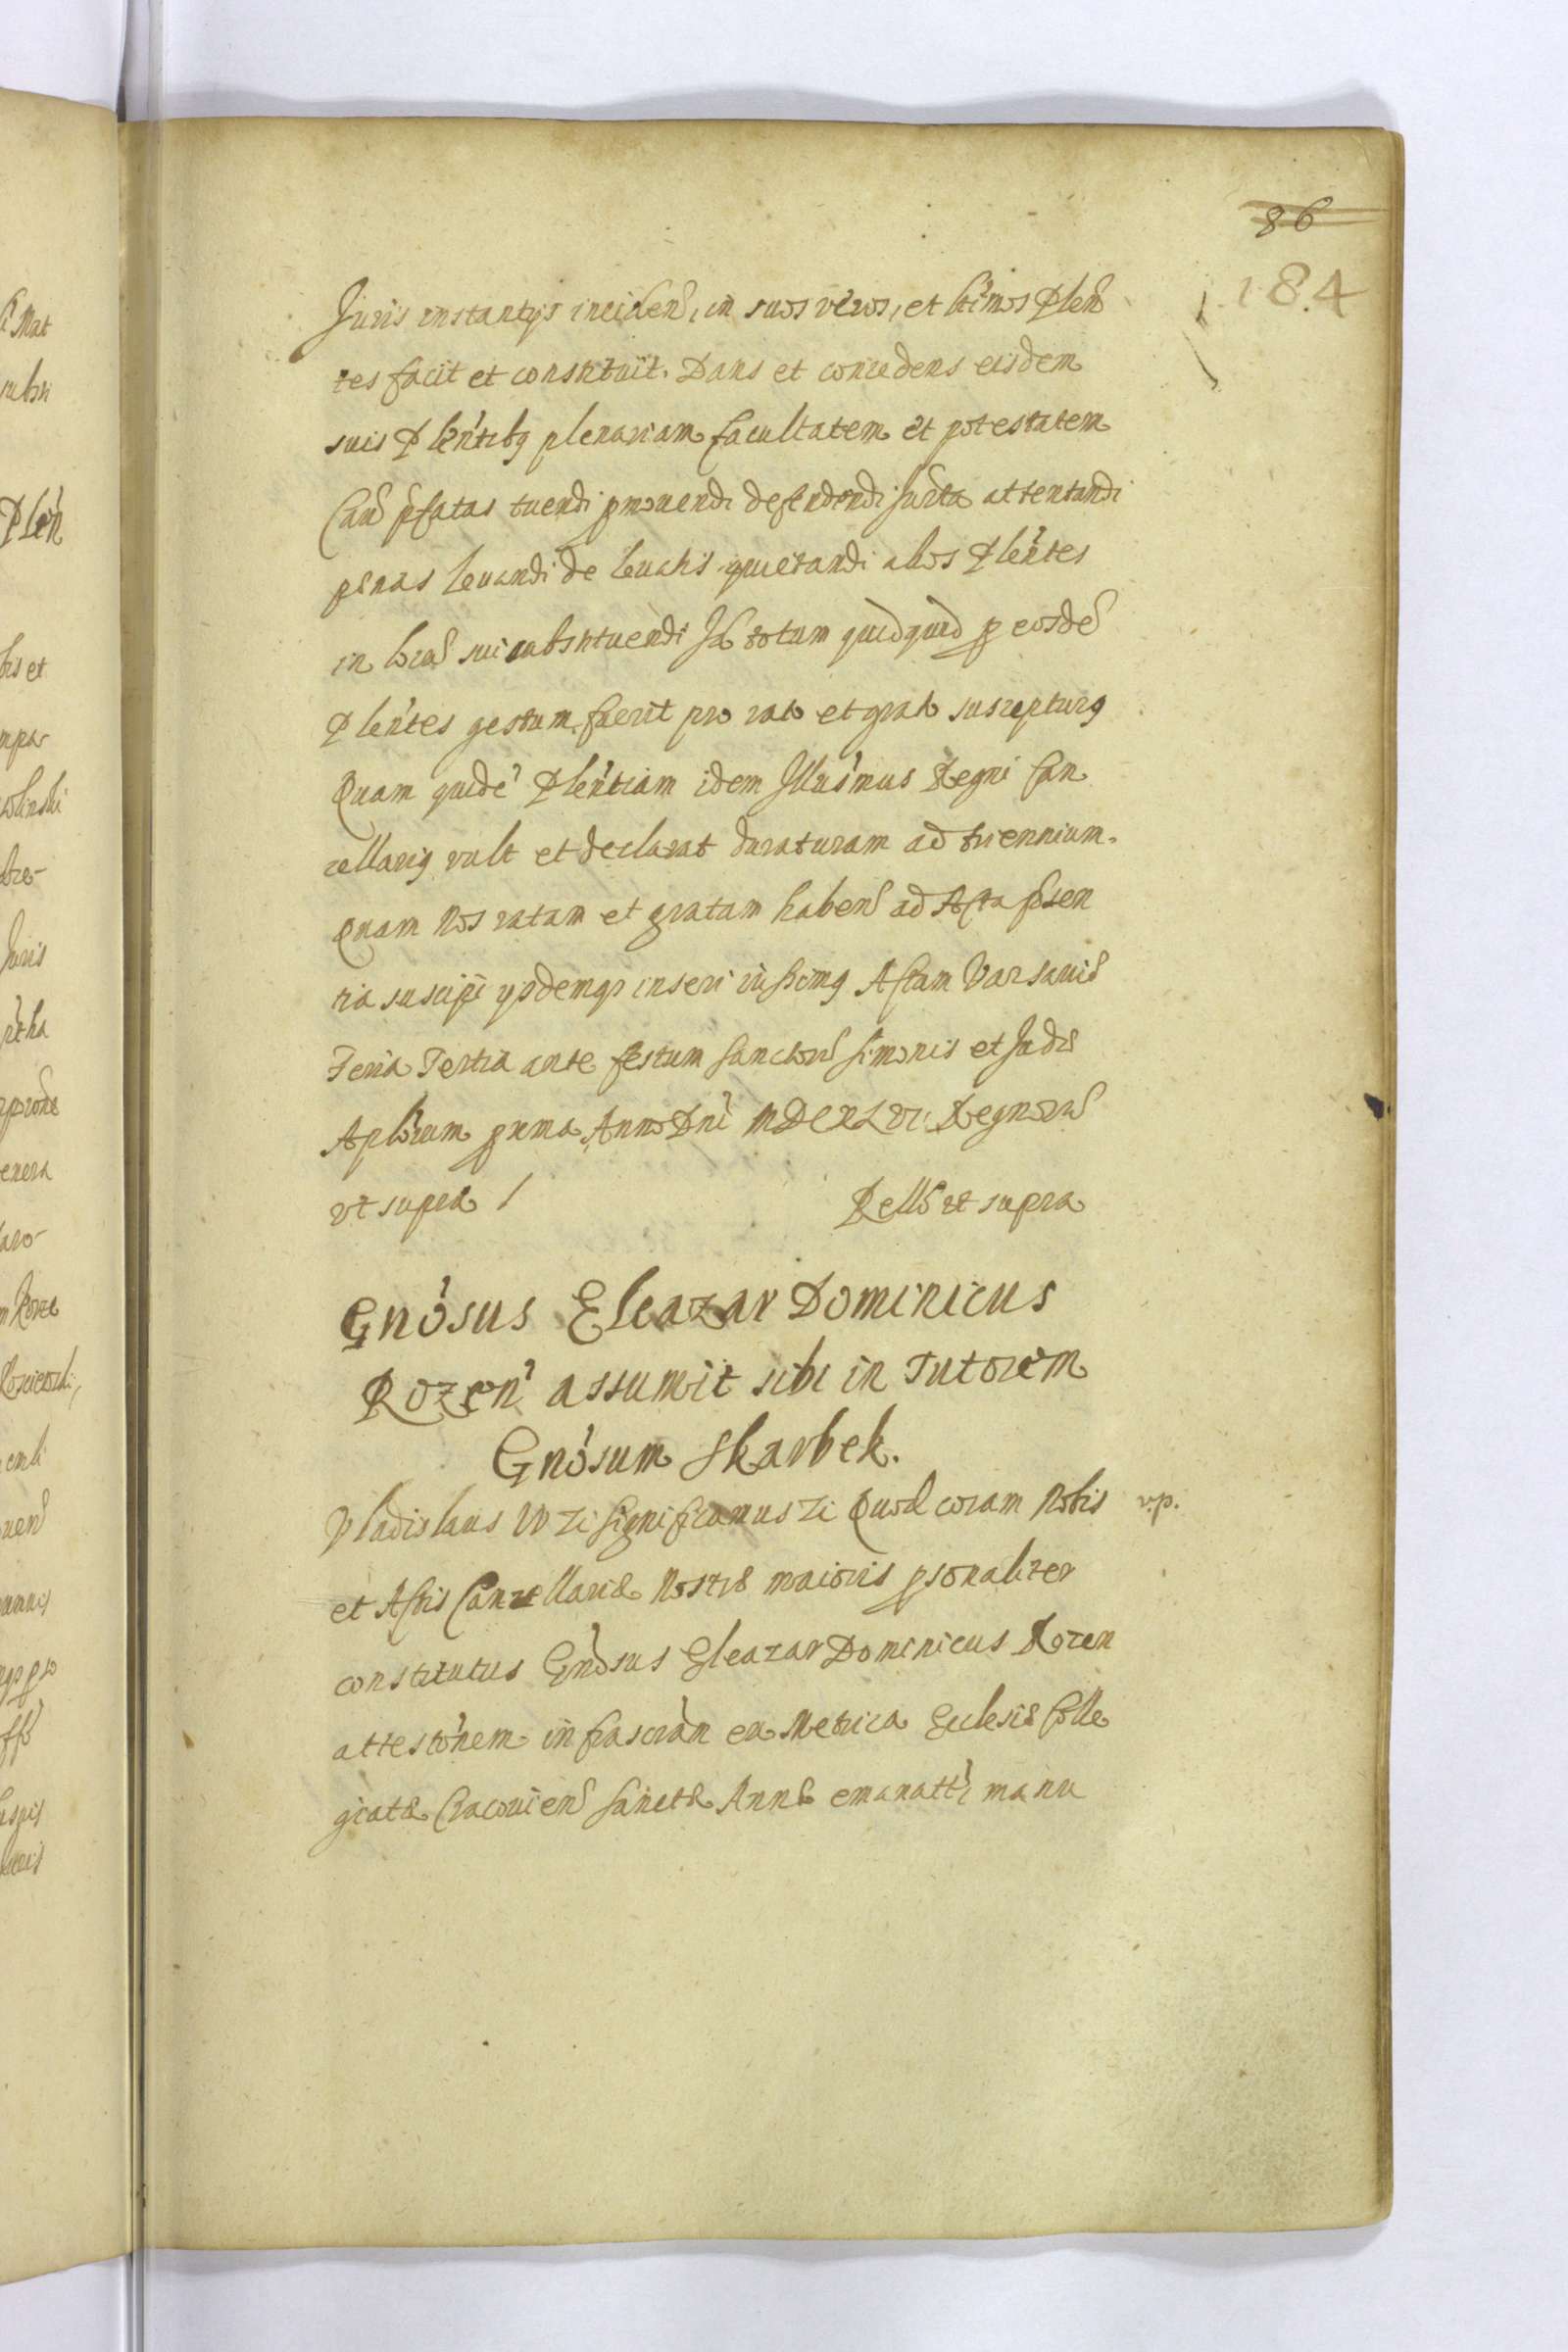 86
184
Juris instantijs inciden, in suos veros, et ltimos Plen
tes facit et constituit. Dans et concedens eisdem
suis Plentibq plenariam facultatem et potestatem
Caus pfatas tuendi pmouendi defendendi jurta attentandi
penas leuandi de leuatis quietandi alios Plentes
in loca sui substituendi Id totum quidquid p eosde
Plentes gestum fuerit pro rato et grato suscepturq
Quam quide Plentiam idem Illusmus Regni Can
cellariq vult et declarat duraturam ad triennium.
Quam Nos ratam et gratam haben ad Acta psen
tia suscipi ysdemq inseri iussimq Actam Varsauiæ
Feria Tertia ante festum Sanctoru Simonis et Judæ
Aplorum pxma Anno Dni MDCXLVI. Regnoru
vt supra /
Rello vt supra
Gnosus Eleazar Dominicus
Rozen assumit sibi in Tutorem
Gnosum Skarbek.
Vladislaus IV Zc Significamus Zc Quod coram Nobis
v.p.
et Actis Cancellariæ Nostræ maioris psonaliter
constitutus Gnosus Eleazar Dominicus Rozen
attestonem infrascram ex Metrica Ecclesiæ Colle
giatæ Cracouien Sanctæ Annæ emanatt manu